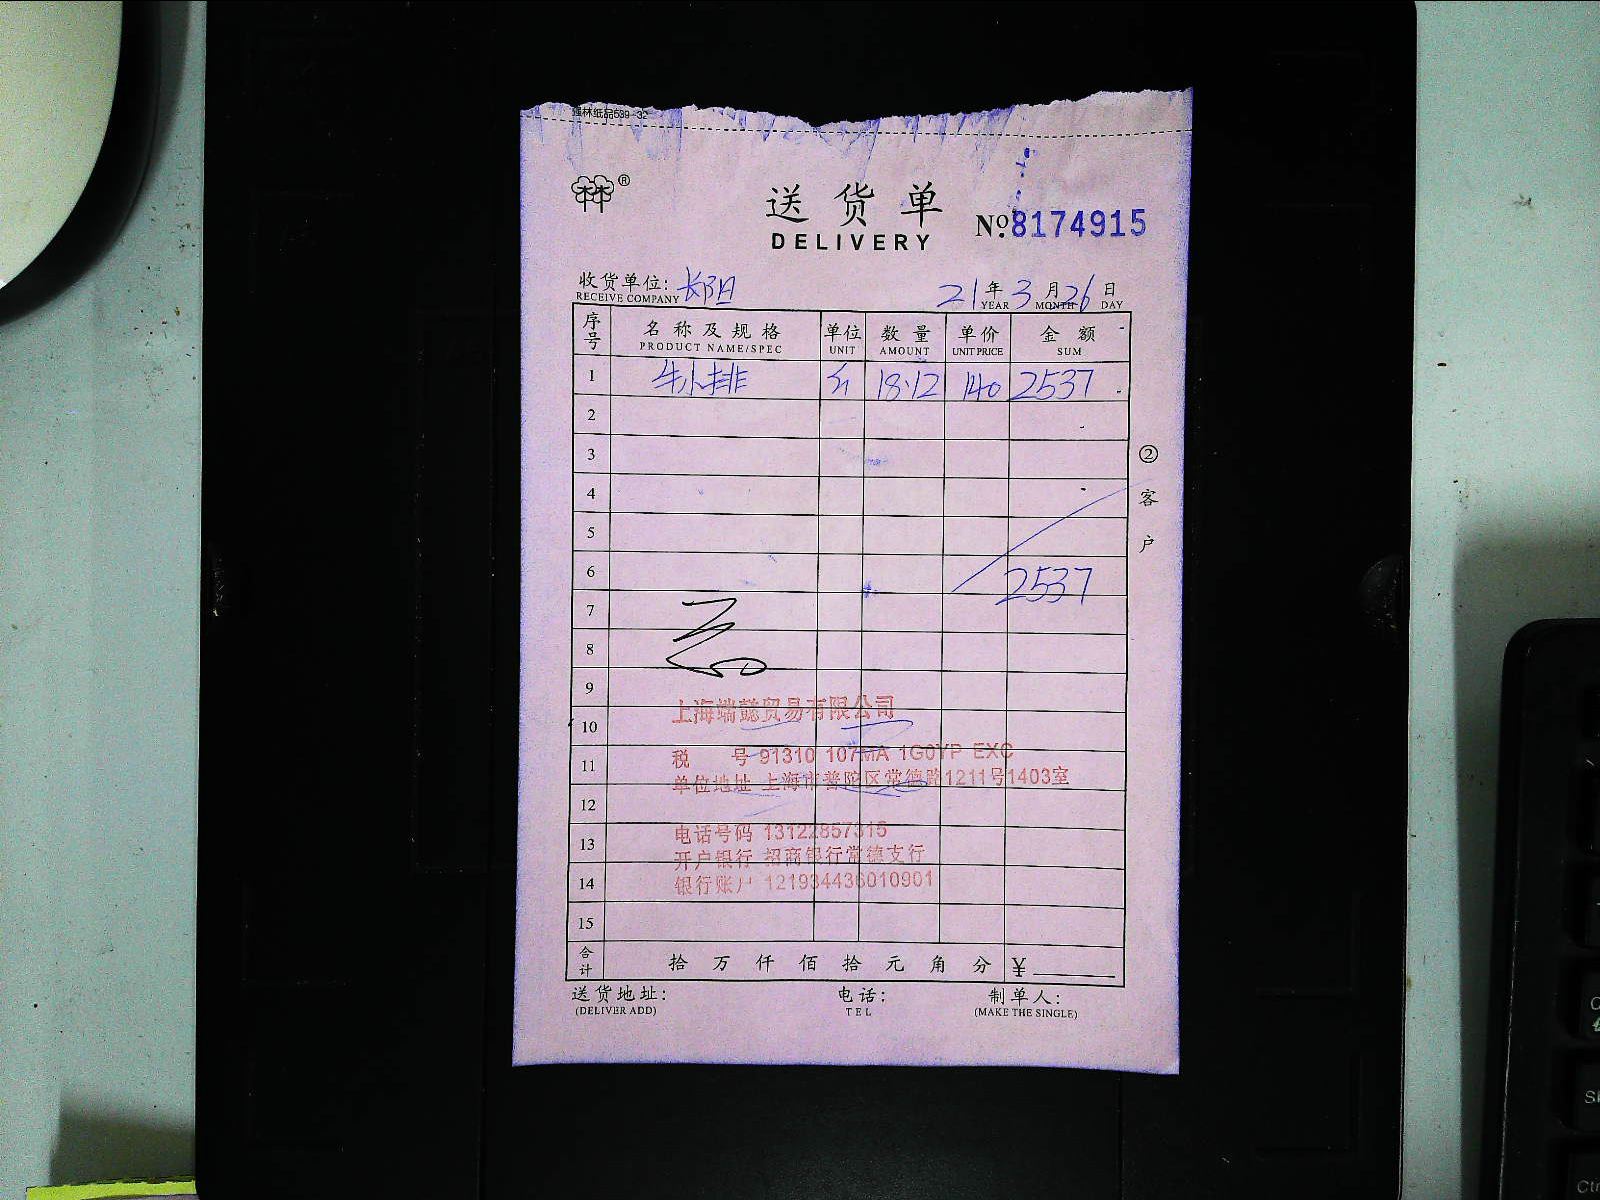 强林纸品539-32
®
送货单
DELIVERY
№8174915
收货单位: 长阳 21年3月26日
RECEIVE COMPANY YEAR MONTH DAY
序号 名称及规格 单位 数量 单价 金额
PRODUCT NAME/SPEC UNIT AMOUNT UNIT PRICE SUM
1 牛小排 18.12 140 2537
2
3
4
5
6 2537
7
8
9
10
11
12
13
14
15
②客户
上海端懿贸易有限公司
税号 91310 107MA 1G0YP EXC
单位地址 上海市普陀区常德路1211号1403室
电话号码 13122857315
开户银行 招商银行常德支行
银行账户 121934436010901
合计 拾 万 仟 佰 拾 元 角 分 ¥
送货地址: 电话: 制单人:
(DELIVER ADD) TEL (MAKE THE SINGLE)